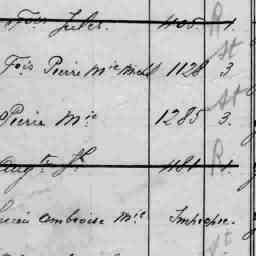 Fois Jules. 1105. R 1.
Fois Pierre Mie Michl 1128 St 3
Pierre Mie 1285 St 3.
Augte Jh 1181 R 1.
Ambroise Mie Impropre.
St